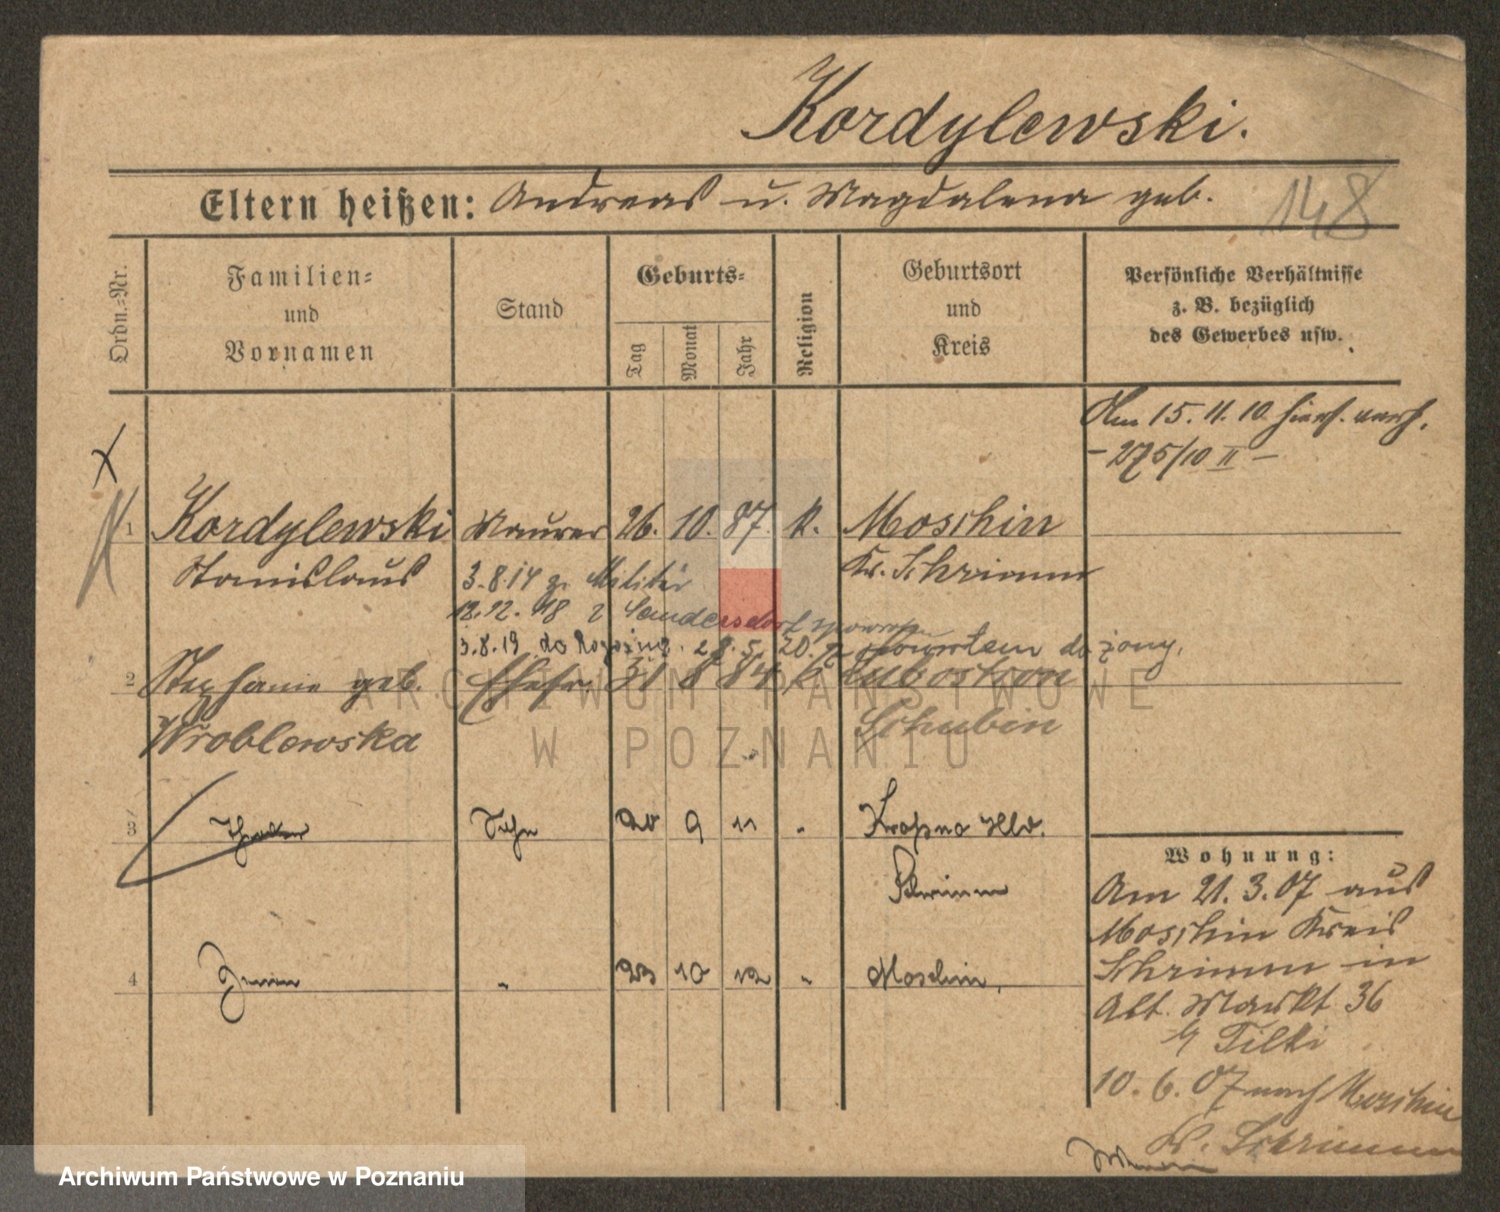 Kordylewski.
Eltern heißen: Andreas u. Magdalena geb.
148
Ordn.=Nr.
Familien=
und
Vornamen
Stand
Geburts=
Tag
Monat
Jahr
Religion
Geburtsort
und
Kreis
Persönliche Verhältnisse
z. B. bezüglich
des Gewerbes usw.
Am 15. 11. 10 hierf. verh.
- 275/10 II -
1 Kordylewski Maurer 26. 10. 87. k. Moschin
Stanislaus
Kr. Schrimm
3.8.14 z. Militär
12.12.18 z Sandersdorf
3.8.19 do 28.5.20. z powrotem do żony.
2 Stephanie geb. Ehefr. 31 8 84 k Lubostron
Wroblewska
Schubin
3 Sohn 20 9 11 "
Schrimm
4 " 23 10 12 " Moschin.
Wohnung:
Am 21. 3. 07 aus
Moschin Kreis
Schrimm in
Alt. Markt 36
b/ Tilki
10. 6. 07 nach Moschin
Kr. Schrimm
ARCHIWUM PAŃSTWOWE
W POZNANIU
Archiwum Państwowe w Poznaniu